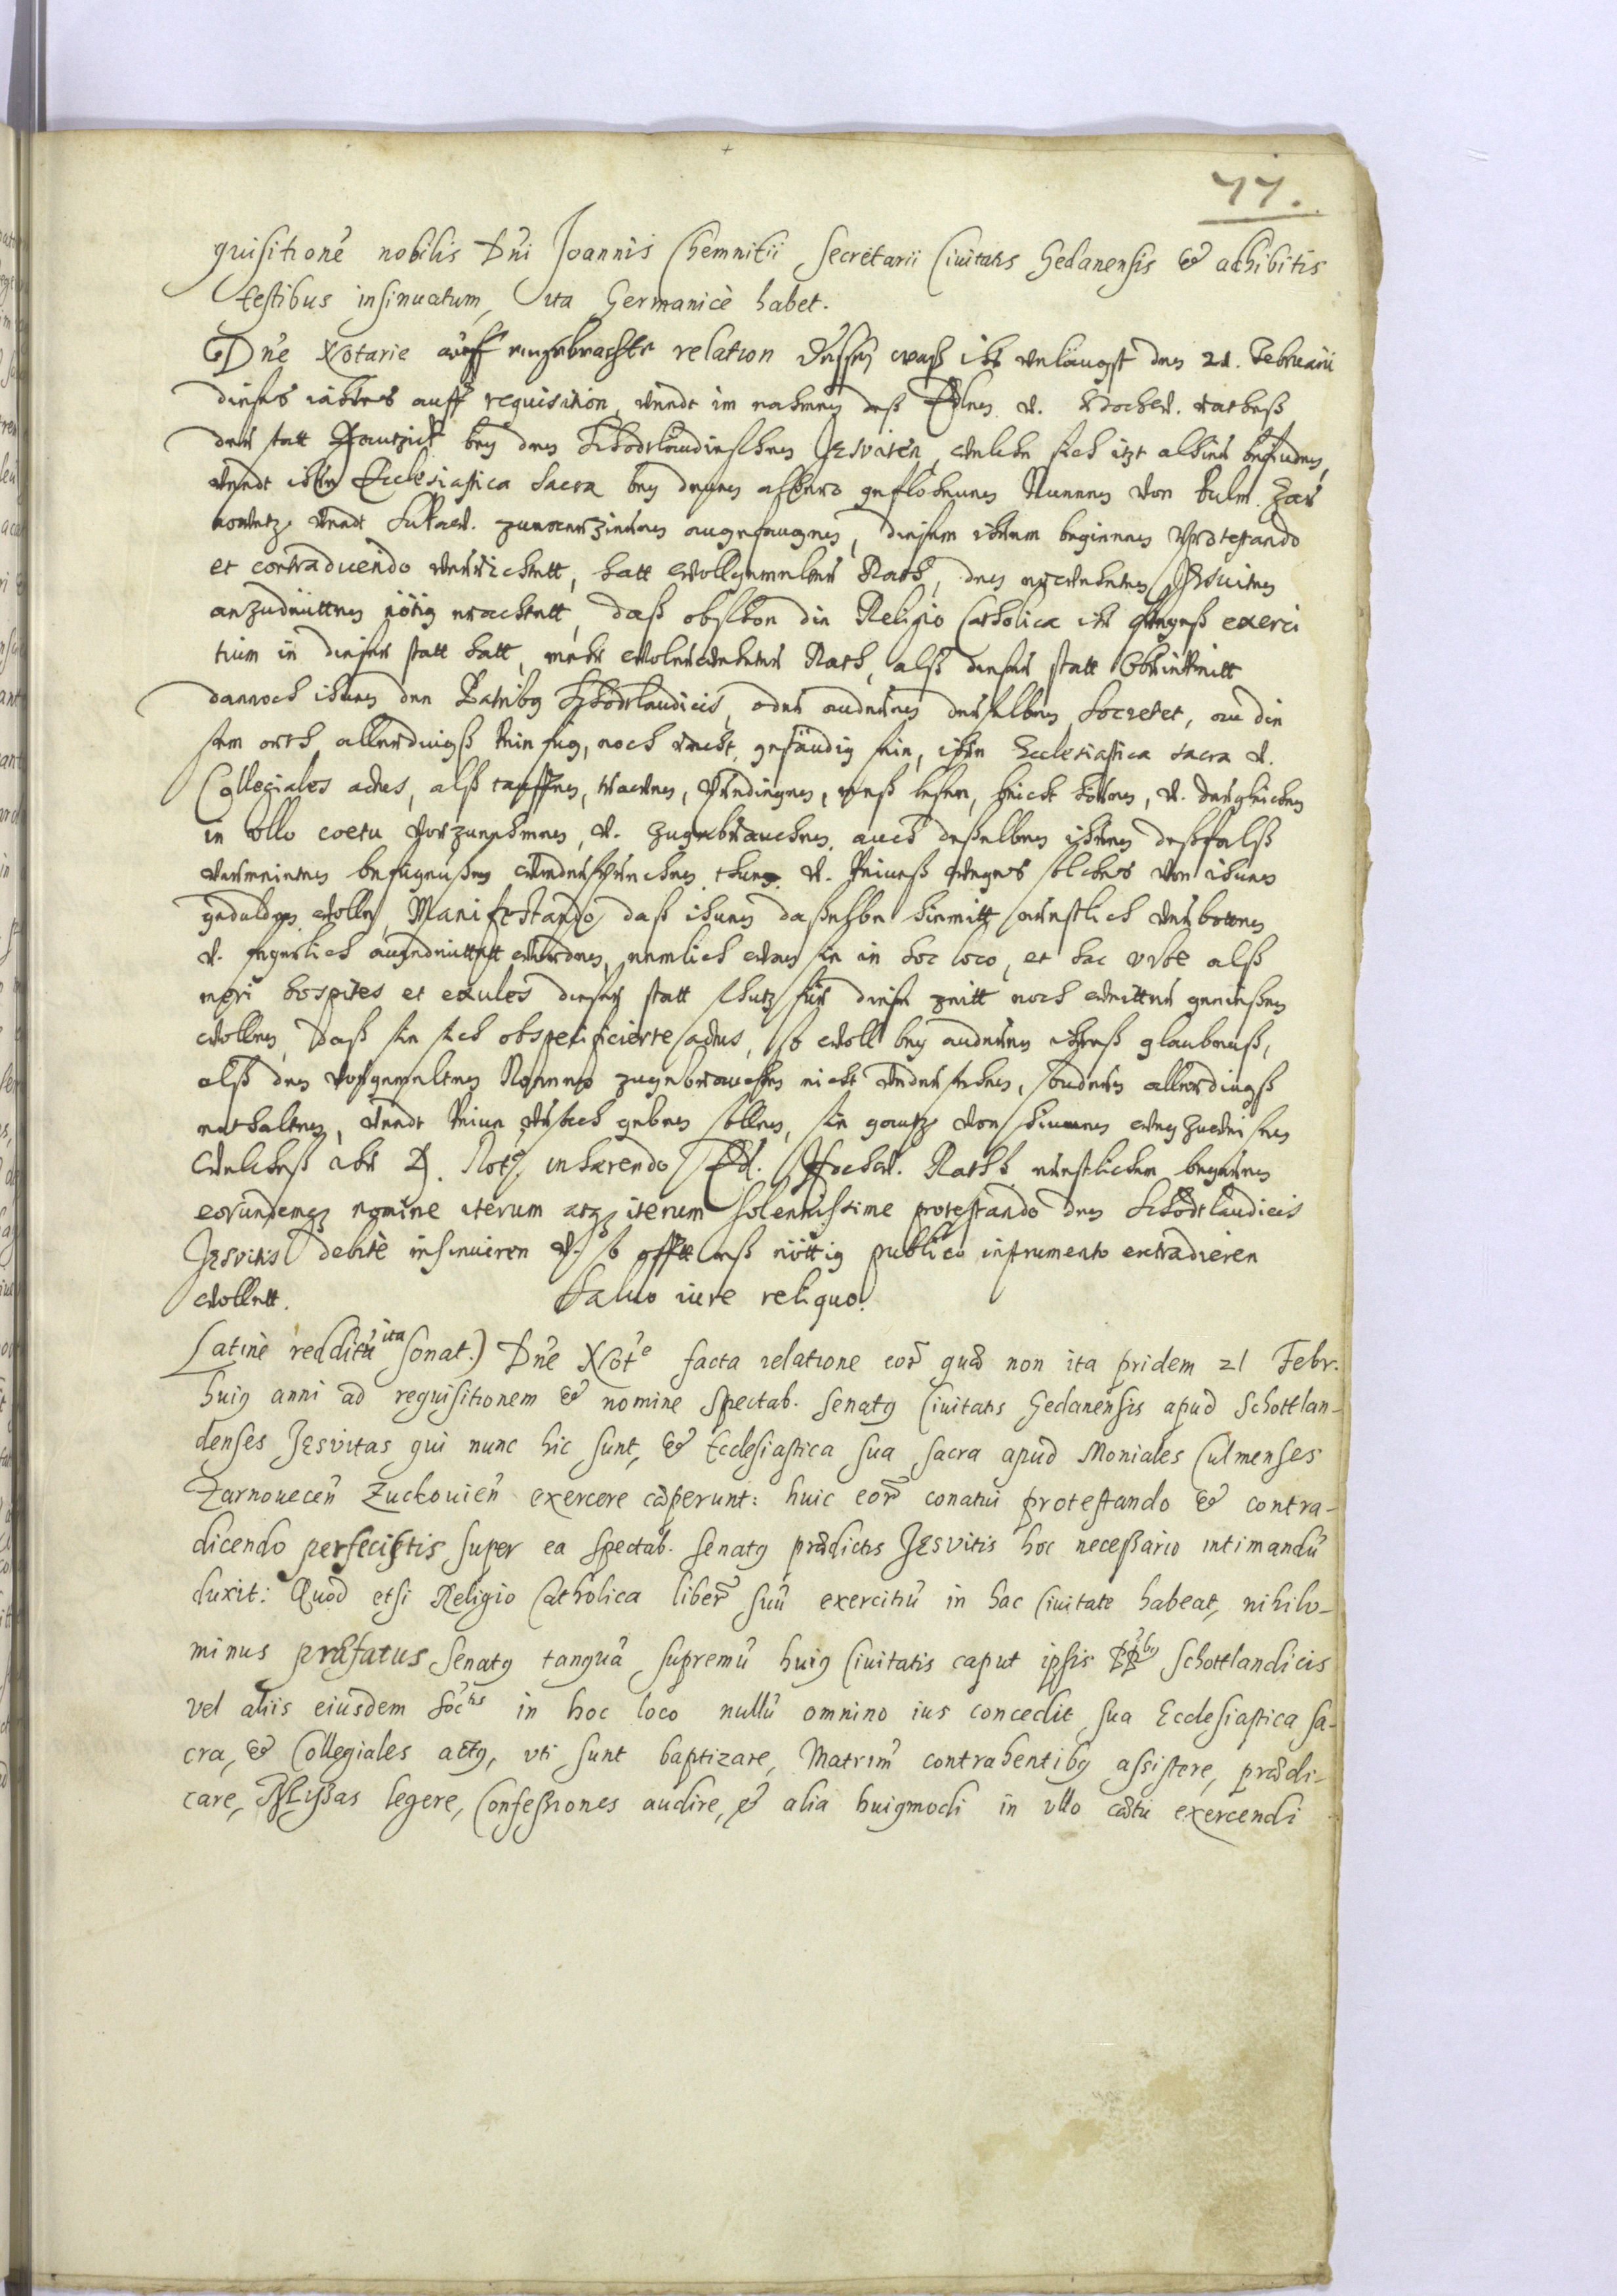 77.
quisitionē nobilis Dn̄i Joannis Chemnitii Secretarii Ciuitatis Gedanensis & adhibitis
testibus insinuatum, ita Germanicè habet.
Dn̄e Notarie auff eingebrachte relation dessen waß ihr vnlängst den 21. Februarii
dieses iahres auff requisition, vnndt im nahmen deß Edlen v. Hochw. rathes
der statt Dantzick bey den Schodtlaudischen Jesuiten, welche sich itzt alhier befinden,
vnndt ihre Ecclesiastica sacra bey denen alhero geflohenen Nunnen von Culm Zar
nowitz vnndt Sukaw. zuexerzieren angefangen, diesem ihrem beginnen protestando
et contradicendo verrichtett, hatt wollgemelter Rath, den erwehnten Jesuiten
anzudeutten nötig erachtett, daß obschon die Religio Catholica ihr freyeß exerci
tium in dieser statt hatt, mehr wolerwehnter Rath, alß dieser statt Obrikeitt
dannoch ihnen den Patribꝫ Schodtlandicis, oder anderen derselben Societet, an die
sem orth allerdingß kein fug, noch recht geständig sein, ihre Ecclesiastica sacra v.
Collegiales actus, alß tauffen, trawen, predingen, meß lesen, beicht hören, v. dergleichen
in vllo coetu vorzunehmen, v. zugebrauchen, auch deßelben ihren deßfalß
vermeinten befugnußen wiedersprechen thue v. keineß weges solches von ihnen
gedulden wolle, Manifestando daß ihnen daßelbe hiemitt ernstlich verbotten
v. angedeuttett werden, nemlich wan sie in hoc loco, et hac vrbe alß
meri hospites et exules dieser statt schutz für diese zeitt noch weitter genießen
wollen, daß sie sich obspecificierte actus, so woll bey anderen ihreß glaubenß,
alß den vorgemelten Nonnen zugebrauchen nicht vnderstehen, sondern allerdingß
enthalten, vnndt keine vrsach geben sollen, sie gantz von hinnen wegzuweisen
Welcheß ihr D. Notꝰ inhærendo Ed. Hochw. Rathß ernstlichem begeren
eorundemqꝫ nomine iterum atqꝫ iterum solennissime protestando den Schodtlaudicis
Jesuitis debitè insinuiren v. so offt eß nöttig publico instrumento extradieren
wollett. Saluo iure reliquo.
Latinè redditū ita sonat.) Dn̄e Notē facta relatione eor̄ quæ non ita pridem 21 Febr.
huiꝰ anni ad requisitionem & nomine Spectab. Senatꝰ Ciuitatis Gedanensis apud Schottlan-
denses Jesuitas qui nunc hic sunt, & Ecclesiastica sua sacra apud Moniales Culmenses
Zarnouecen̄ Zuckouien̄ exercere cæperunt: huic eor̄ conatui protestando & contra-
dicendo perfecistis super ea Spectab. Senatꝰ prædictis Jesuitis hoc necessario intimandū
duxit: Quod etsi Religio Catholica liber̄ suū exercitiū in hac Ciuitate habeat, nihilo-
minus præfatus Senatꝰ tanquā supremū huiꝰ Ciuitatis caput ipsis PP̄bꝰ Schottlandicis
vel aliis eiusdem Soc̄tis in hoc loco nullū omnino ius concedit sua Ecclesiastica sa-
cra, & Collegiales actꝰ, vti sunt baptizare, Matrim̄ contrahentibꝰ assistere, prædi-
care, Missas legere, Confessiones audire, & alia huiꝰmodi in vllo cætu exercendi